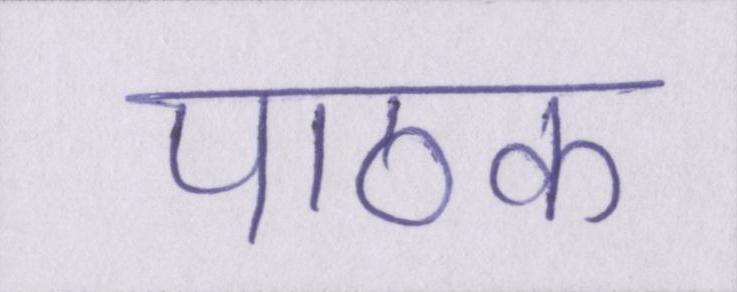 पाठक